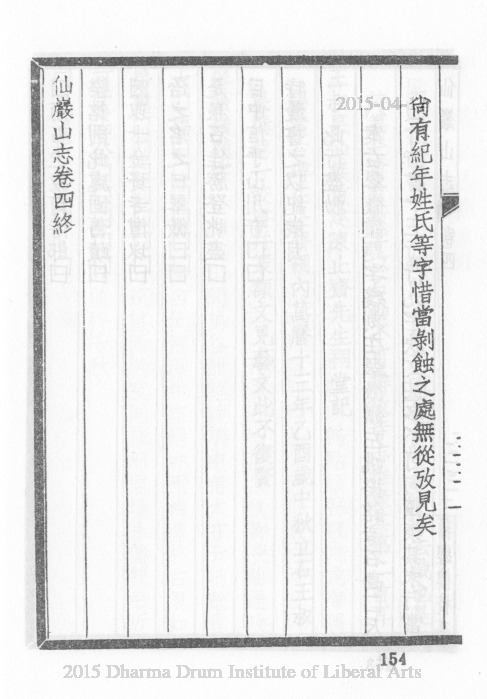 尙有紀年姓氏等字惜當剝蝕之處無從攷見矣
仙巖山志卷四終
154
2015 Dharma Drum Institute of Liberal Arts